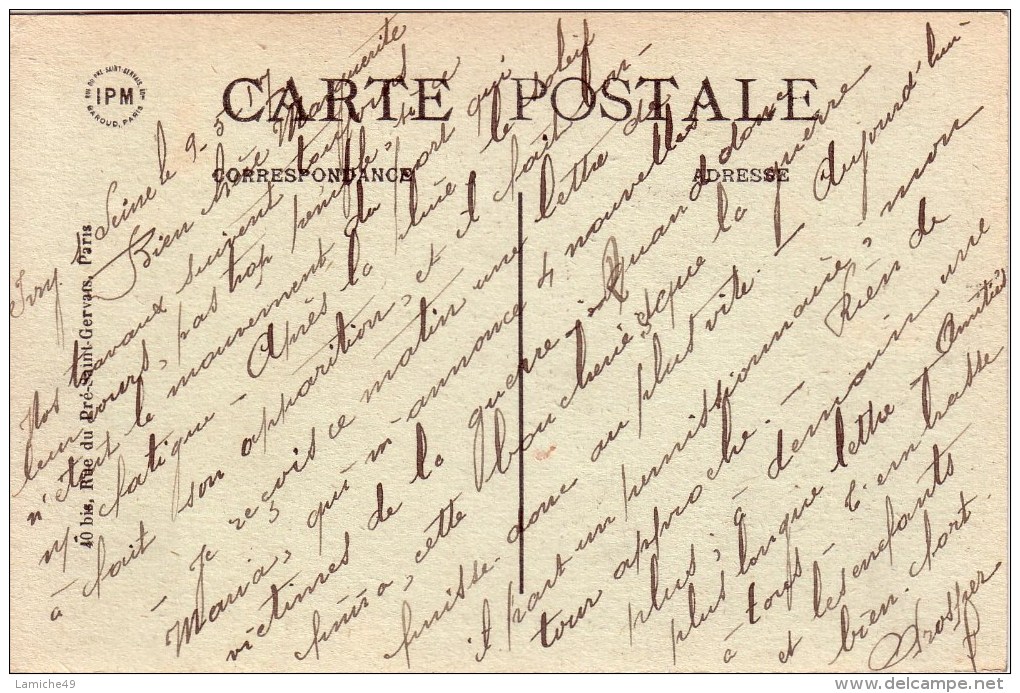 CARTE POSTALE
CORRESPONDANCE
ADRESSE
IPM
BAROUD, PARIS
40 bis, Rue du Pré-Saint-Gervais, Paris
Ivry s/ Seine le 9-5-17
Bien chère Marguerite
Nos travaux suivent toujours
leur cours, pas trop pénible,
n'était le mouvement du port qui
fatigue - Après la pluie le soleil
à fait son apparition, et il fait bon -
Je reçois ce matin une lettre de
Maria, qui m'annonce 4 nouvelles
victimes de la guerre - Quand donc
finira, cette boucherie, que la guerre
finisse donc au plus vite. - Aujourd'hui
il part un permissionnaire, mon
tour approche. - Rien de
plus, à demain une
plus longue lettre - Amitiés
à tous - t'embrasse
et les enfants
bien fort.
Prosper
Lamiche49
http://www.delcampe.net